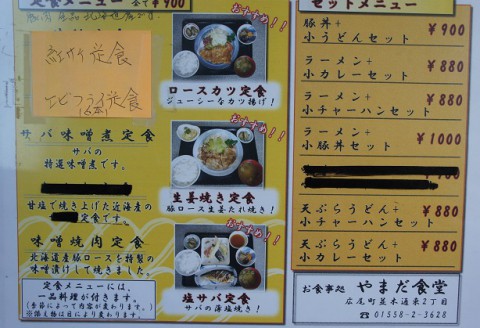 定食メニュー 全て¥900
紅サケ定食
エビフライ定食
サバ味噌煮定食
サバの
特選味噌煮です。
甘塩で焼き上げた近海産の
定食です。
味噌焼肉定食
北海道産豚ロースを特製の
味噌漬けして焼きました。
定食メニューには、
一品料理が付きます。
(季節によって内容が変わります)
おすすめ!!
ロースカツ定食
ジューシーなカツ揚げ!
おすすめ!!
生姜焼き定食
豚ロース生姜たれ焼き!
おすすめ!!
塩サバ定食
サバの薄塩焼き!
セットメニュー
豚丼+
小うどんセット ¥900
ラーメン+
小カレーセット ¥880
ラーメン+
小チャーハンセット ¥880
ラーメン+
小豚丼セット ¥1000
天ぷらうどん+
小チャーハンセット ¥880
天ぷらうどん+
小カレーセット ¥880
お食事処 やまだ食堂
広尾町並木通東2丁目
☎ 01558-2-3628